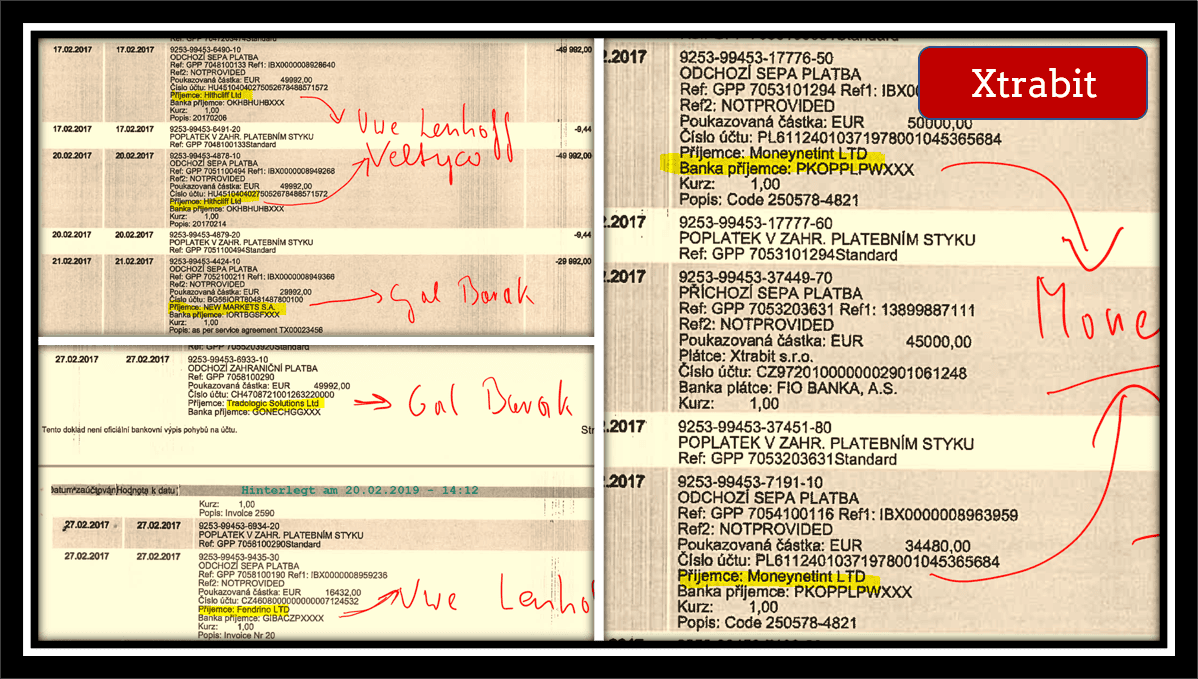 Xtrabit
17.02.2017 17.02.2017 9253-99453-6490-10 -49 992,00
ODCHOZÍ SEPA PLATBA
Ref: GPP 7048100133 Ref1: IBX0000008928640
Ref2: NOTPROVIDED
Poukazovaná částka: EUR 49992,00
Číslo účtu: HU45104040275052678488571572
Příjemce: Hithcliff Ltd
Banka příjemce: OKHBHUHBXXX
Kurz: 1,00
Popis: 20170206
17.02.2017 17.02.2017 9253-99453-6491-20 -9,44
POPLATEK V ZAHR. PLATEBNÍM STYKU
Ref: GPP 7048100133Standard
Uwe Lenhoff
Veltyco
20.02.2017 20.02.2017 9253-99453-4878-10 -49 992,00
ODCHOZÍ SEPA PLATBA
Ref: GPP 7051100494 Ref1: IBX0000008949268
Ref2: NOTPROVIDED
Poukazovaná částka: EUR 49992,00
Číslo účtu: HU45104040275052678488571572
Příjemce: Hithcliff Ltd
Banka příjemce: OKHBHUHBXXX
Kurz: 1,00
Popis: 20170214
20.02.2017 20.02.2017 9253-99453-4879-20 -9,44
POPLATEK V ZAHR. PLATEBNÍM STYKU
Ref: GPP 7051100494Standard
21.02.2017 21.02.2017 9253-99453-4424-10 -29 992,00
ODCHOZÍ SEPA PLATBA
Ref: GPP 7052100211 Ref1: IBX0000008949366
Ref2: NOTPROVIDED
Poukazovaná částka: EUR 29992,00
Číslo účtu: BG56IORT80481487800100
Příjemce: NEW MARKETS S.A.
Banka příjemce: IORTBGSFXXX
Kurz: 1,00
Popis: as per service agreement TX00023456
Gal Barak
Ref: GPP 7055203920Standard
27.02.2017 27.02.2017 9253-99453-6933-10
ODCHOZÍ ZAHRANIČNÍ PLATBA
Ref: GPP 7058100290
Poukazovaná částka: EUR 49992,00
Číslo účtu: CH4708721001263220000
Příjemce: Tradologic Solutions Ltd
Banka příjemce: GONECHGGXXX
Gal Barak
Tento doklad není oficiální bankovní výpis pohybů na účtu. Str
Datum zaúčtování Hodnota k datu Hinterlegt am 20.02.2019 - 14:12
Kurz: 1,00
Popis: Invoice 2590
27.02.2017 27.02.2017 9253-99453-6934-20
POPLATEK V ZAHR. PLATEBNÍM STYKU
Ref: GPP 7058100290Standard
27.02.2017 27.02.2017 9253-99453-9435-30
ODCHOZÍ SEPA PLATBA
Ref: GPP 7058100190 Ref1: IBX0000008959236
Ref2: NOTPROVIDED
Poukazovaná částka: EUR 16432,00
Číslo účtu: CZ4608000000000007124532
Příjemce: Fendrino LTD
Banka příjemce: GIBACZPXXXX
Kurz: 1,00
Popis: Invoice Nr 20
Uwe Lenho
2.2017 9253-99453-17776-50
ODCHOZÍ SEPA PLATBA
Ref: GPP 7053101294 Ref1: IBX00
Ref2: NOTPROVIDED
Poukazovaná částka: EUR 50000,00
Číslo účtu: PL61124010371978001045365684
Příjemce: Moneynetint LTD
Banka příjemce: PKOPPLPWXXX
Kurz: 1,00
Popis: Code 250578-4821
2.2017 9253-99453-17777-60
POPLATEK V ZAHR. PLATEBNÍM STYKU
Ref: GPP 7053101294Standard
2.2017 9253-99453-37449-70
PŘÍCHOZÍ SEPA PLATBA
Ref: GPP 7053203631 Ref1: 13899887111
Ref2: NOTPROVIDED
Poukazovaná částka: EUR 45000,00
Plátce: Xtrabit s.r.o.
Číslo účtu: CZ9720100000002901061248
Banka plátce: FIO BANKA, A.S.
Kurz: 1,00
Mone
2.2017 9253-99453-37451-80
POPLATEK V ZAHR. PLATEBNÍM STYKU
Ref: GPP 7053203631Standard
2.2017 9253-99453-7191-10
ODCHOZÍ SEPA PLATBA
Ref: GPP 7054100116 Ref1: IBX0000008963959
Ref2: NOTPROVIDED
Poukazovaná částka: EUR 34480,00
Číslo účtu: PL61124010371978001045365684
Příjemce: Moneynetint LTD
Banka příjemce: PKOPPLPWXXX
Kurz: 1,00
Popis: Code 250578-4821